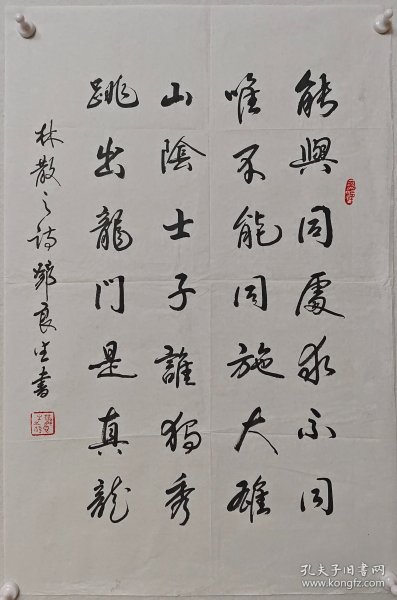 能與同處求不同
唯不能同施大雄
山陰士子誰獨秀
跳出龍門是真龍
林散之詩 良生書
孔夫子旧书网
www.kongfz.com